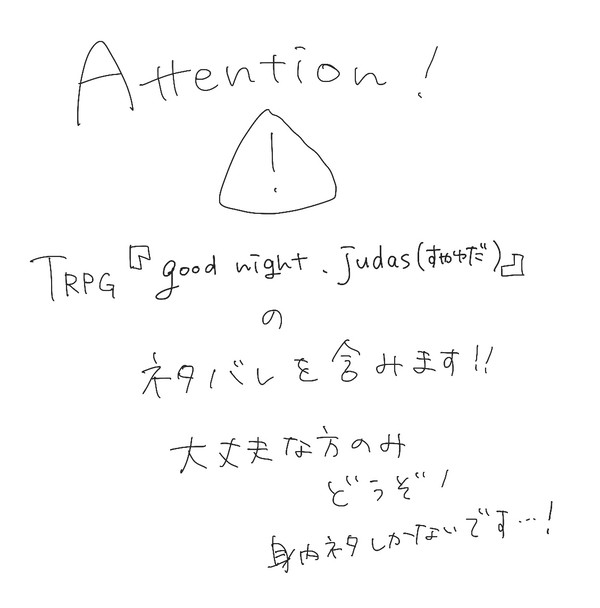 Attention!
!
TRPG『good night, judas(すややだ)』
の
ネタバレを含みます!!
大丈夫な方のみ
どうぞ!
身内ネタしかないです…!